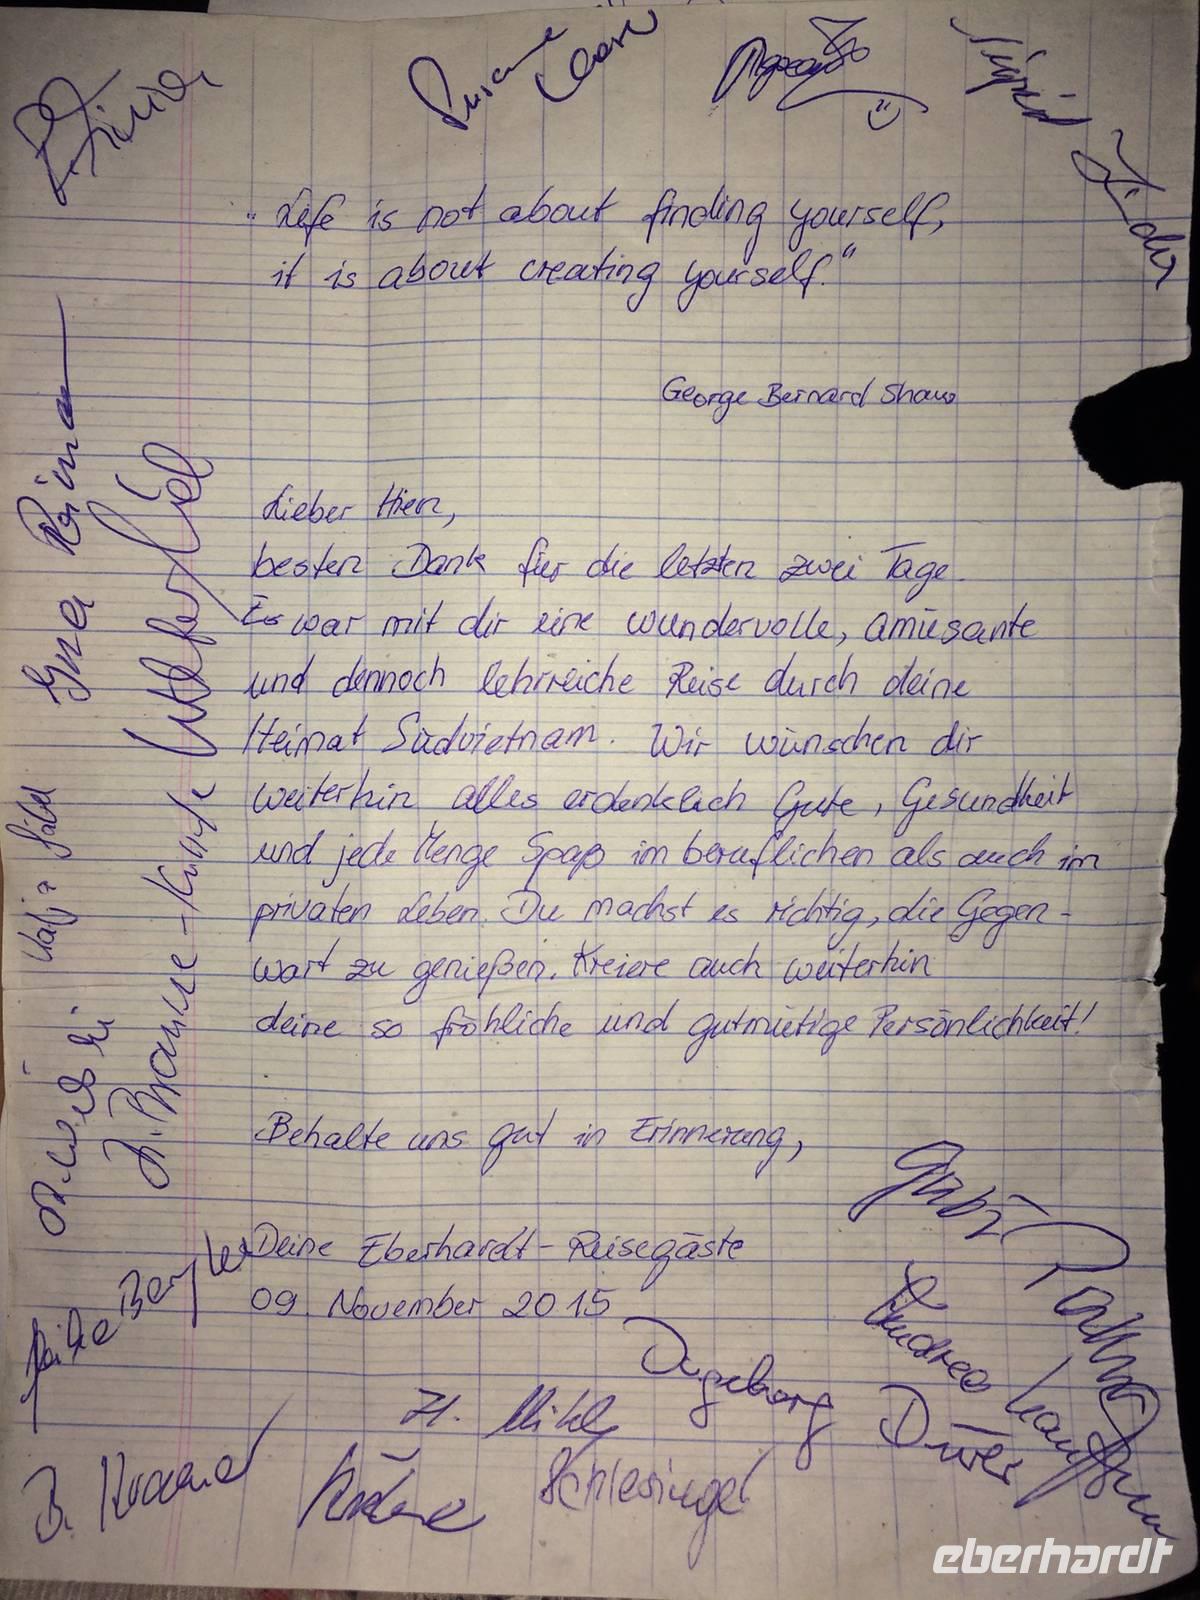 "Life is not about finding yourself,
it is about creating yourself."
George Bernard Shaw
Lieber Hien,
besten Dank für die letzten zwei Tage.
Es war mit dir eine wundervolle, amüsante
und dennoch lehrreiche Reise durch deine
Heimat Südvietnam. Wir wünschen dir
weiterhin alles erdenklich Gute, Gesundheit
und jede Menge Spaß im beruflichen als auch im
privaten Leben. Du machst es richtig, die Gegen-
wart zu genießen. Kreiere auch weiterhin
deine so fröhliche und gutmütige Persönlichkeit!
Behalte uns gut in Erinnerung,
Deine Eberhardt-Reisegäste
09. November 2015
Ina
Katja
Ingeborg
Dürer
Andrea
Schlesinger
H.
B.
eberhardt